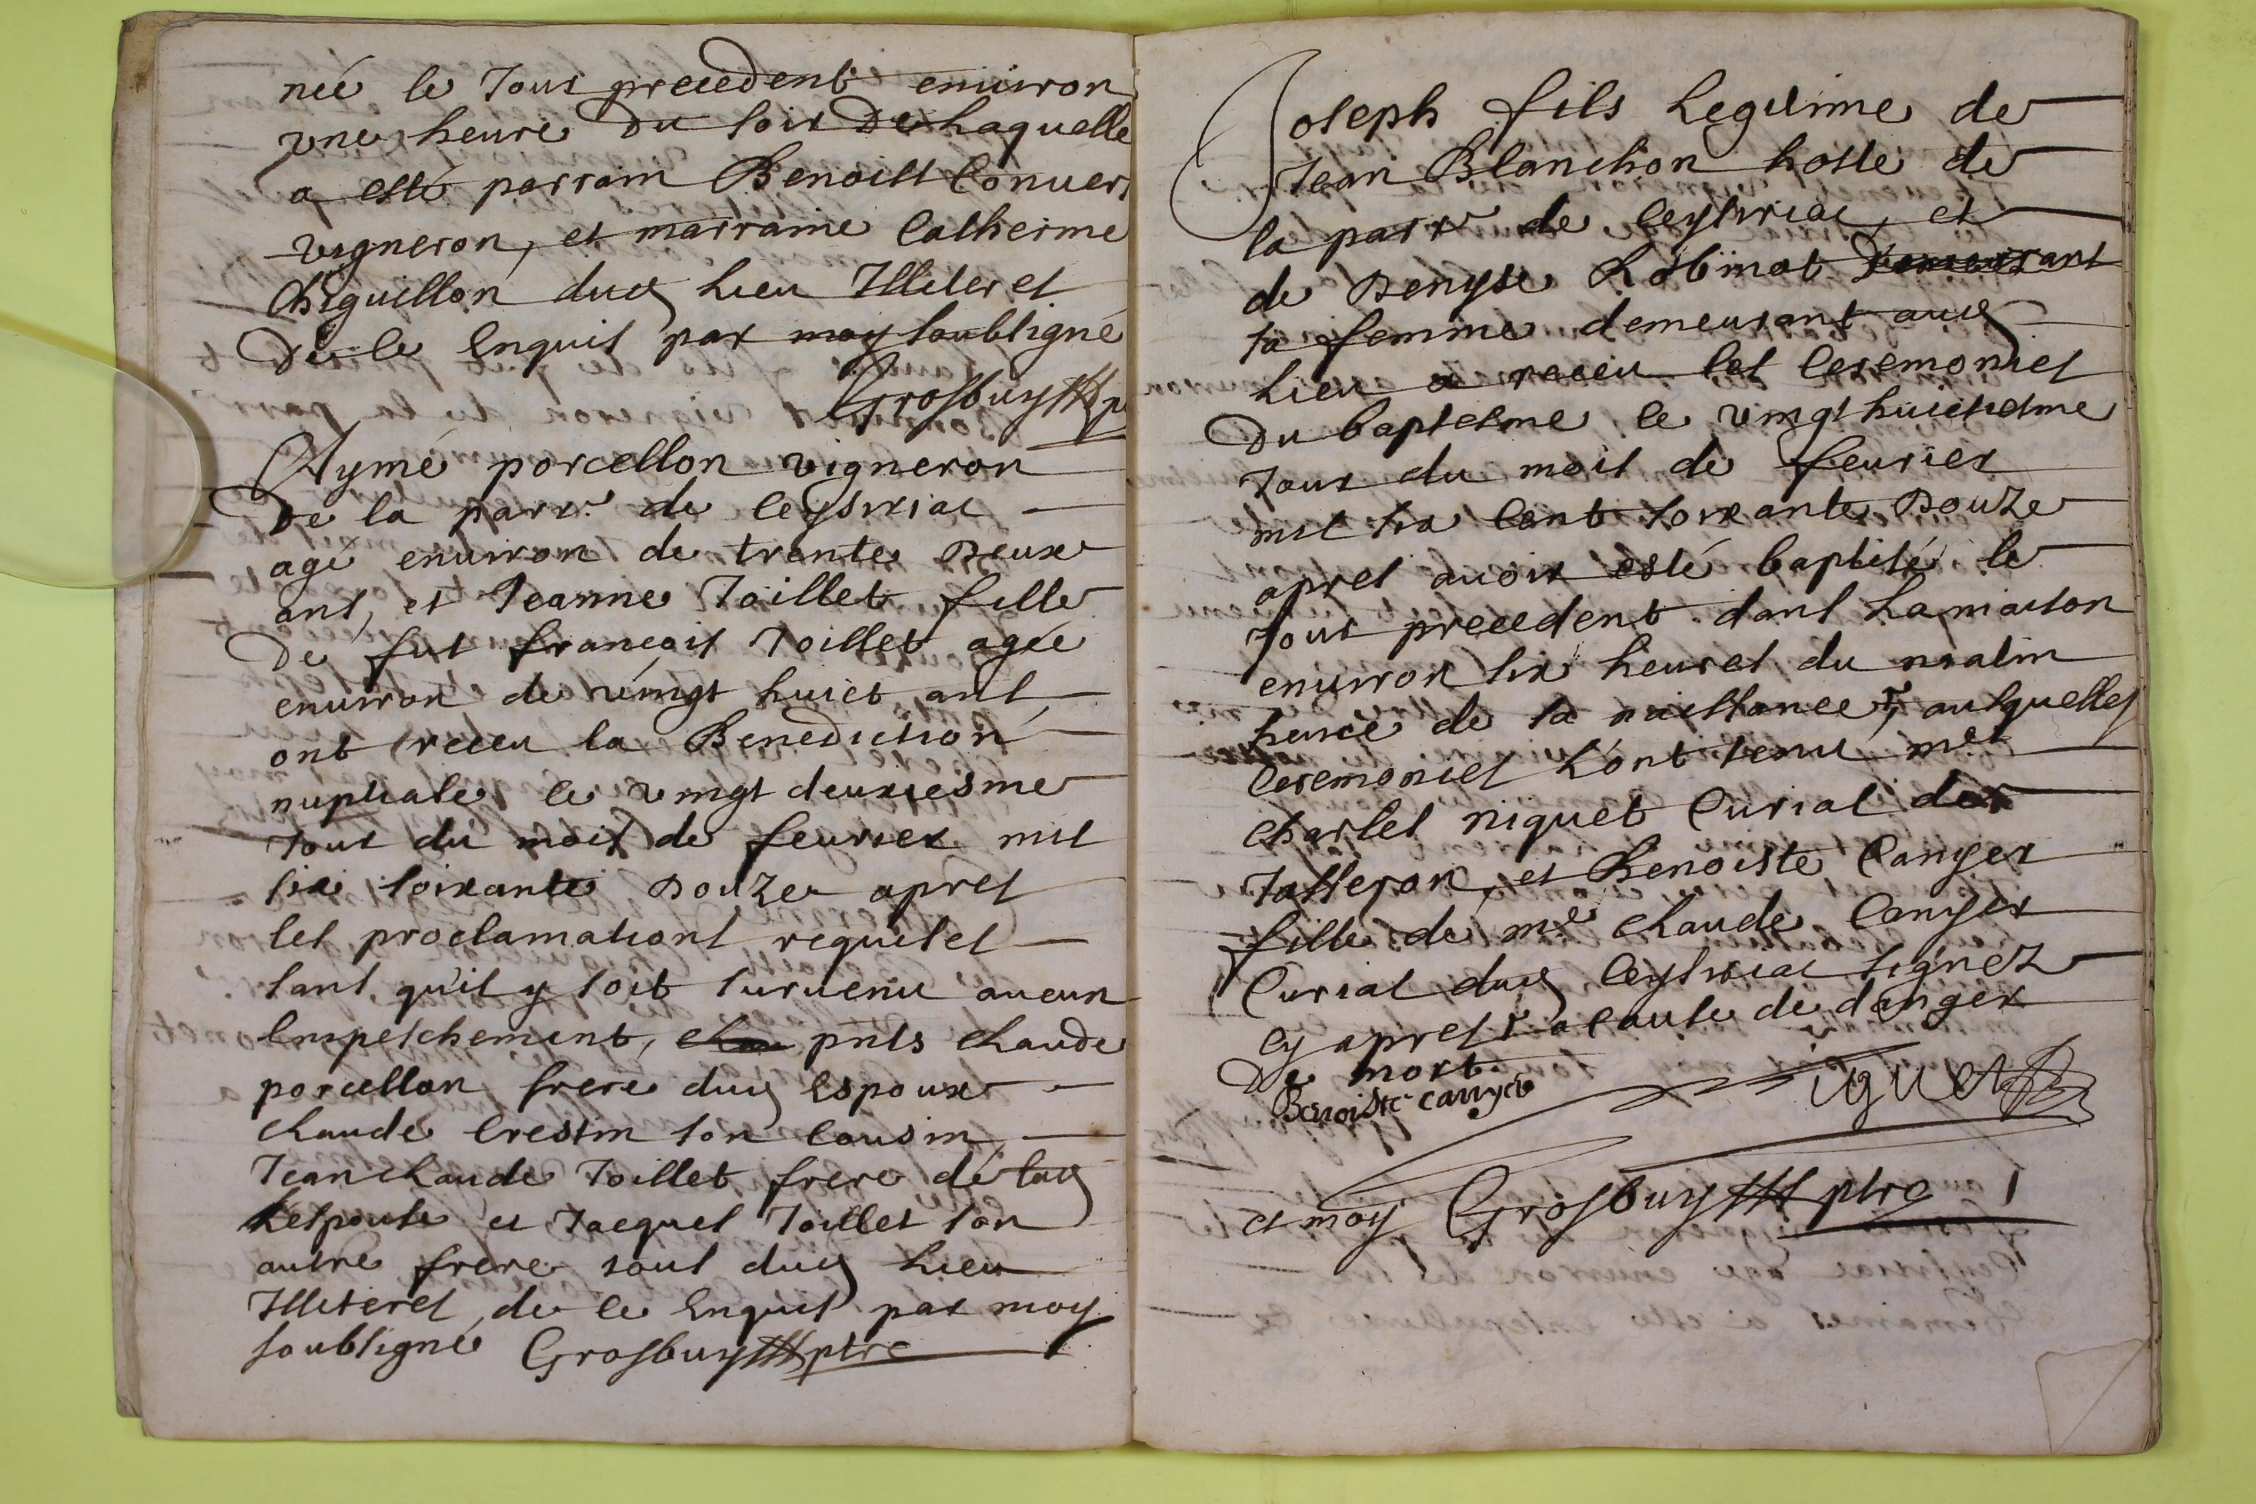 née le Jour precedent enuiron
vne heure du soir de Laquelle
a esté parrain Benoist Conuers
vigneron, et marraine Catherine
Chiguillon dud Lieu Illiteres
de ce Enquis par moy soubsigné
Grosbuy p
Aymé porcellon vigneron
De la parr.e de Ceysiriac
agé enuiron de trente Deux
ans, et Jeanne Joillet fille
De fut françois Joillet agée
enuiron de vingt huict ans,
ont receu la Benediction
nuptiale le vingt deuxiesme
Jour du mois de feurier mil
six soixante Douze apres
les proclamations requises
sans qu'il y soit suruenu aucun
Empeschement, pnts Claude
porcellon frere dud Espoux
Claude Crestin son Cousin
Jean Claude Joillet frere de lad
Lespouse et Jacques Joillet son
autre frere tous dud Lieu
Illiteres de ce Enquis par moy
soubsigné Grosbuy ptre
Joseph fils Legitime de
Jean Blanchon hoste de
la parr.e de Ceysiriac, et
de Denyse Robinat demeurant
sa femme demeurant aud
Lieu a receu les Ceremonies
Du baptesme le vingt huictiesme
Jour du mois de feurier
mil six Cent soixante Douze
apres auoir esté baptisé le
Jour precedent dans La maison
enuiron six heures du matin
heure de sa naissance, ausquelles
Ceremonies L'ont tenu mes
Charles niquet Curial de
Jasseron, et Benoiste Canyer
fille de me Claude Canyer
Curial dud Ceysiriac signez
Cy apres a Cause de danger
De mort.
Benoiste canyer
Niquet
et moy Grosbuy ptre